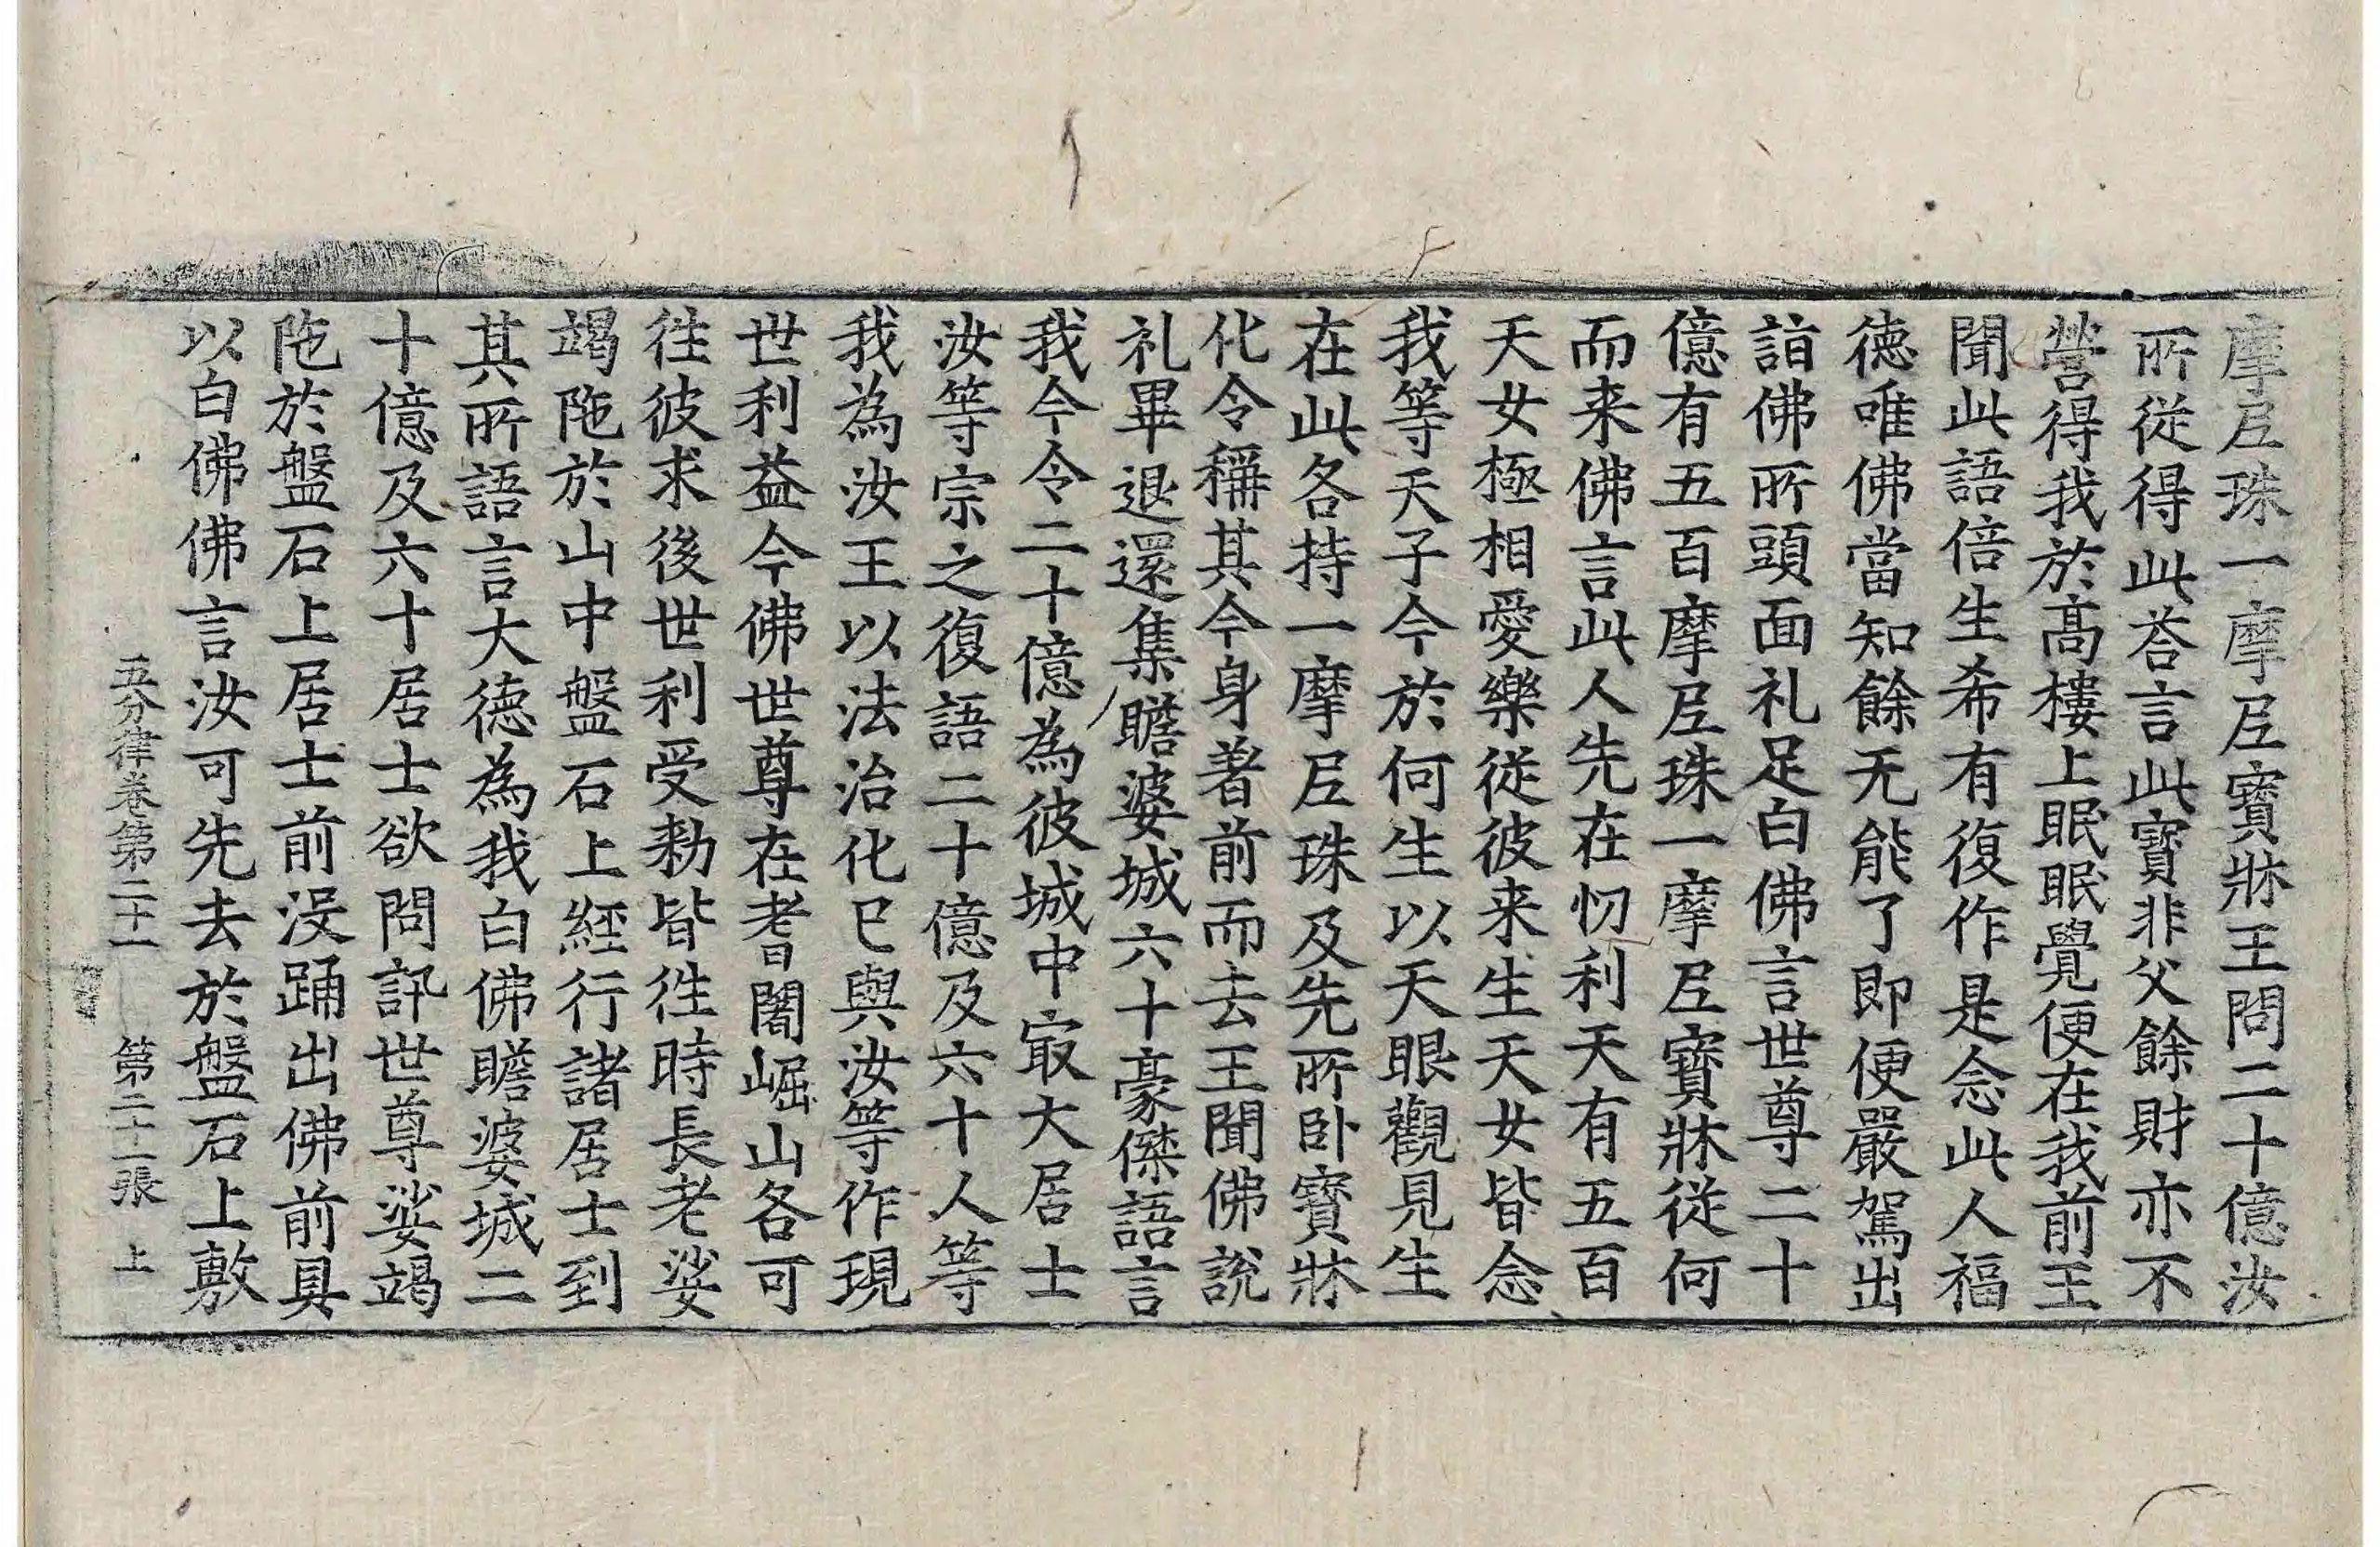 摩尼珠一摩尼寶牀王問二十億汝
所從得此荅言此寶非父餘財亦不
營得我於髙樓上眠眠覺便在我前王
聞此語倍生希有復作是念此人福
德唯佛當知餘无能了即便嚴駕出
詣佛所頭面礼足白佛言世尊二十
億有五百摩尼珠一摩尼寶牀從何
而来佛言此人先在忉利天有五百
天女極相愛樂從彼来生天女皆念
我等天子今於何生以天眼觀見生
在此各持一摩尼珠及先所卧寶牀
化令稱其今身著前而去王聞佛說
礼畢退還集瞻婆城六十豪傑語言
我今令二十億為彼城中㝡大居士
汝等宗之復語二十億及六十人等
我為汝王以法治化已與汝等作現
世利益今佛世尊在耆闍崛山各可
往彼求後世利受勑皆往時長老娑
竭陁於山中盤石上經行諸居士到
其所語言大德為我白佛瞻婆城二
十億及六十居士欲問訊世尊娑竭
陁於盤石上居士前沒踊出佛前具
以白佛佛言汝可先去於盤石上敷
五分律卷第二十一　第二十一張　上